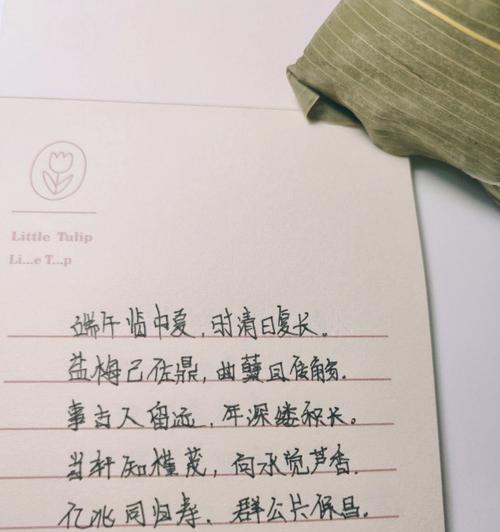 Little Tulip
Li...e T...p
端午临中夏,时清日复长。
盐梅已佐鼎,曲蘖且传觞.
事古人留迹,年深缕积长。
当轩知槿茂,向水觉芦香.
亿兆同归寿、群公共保昌.